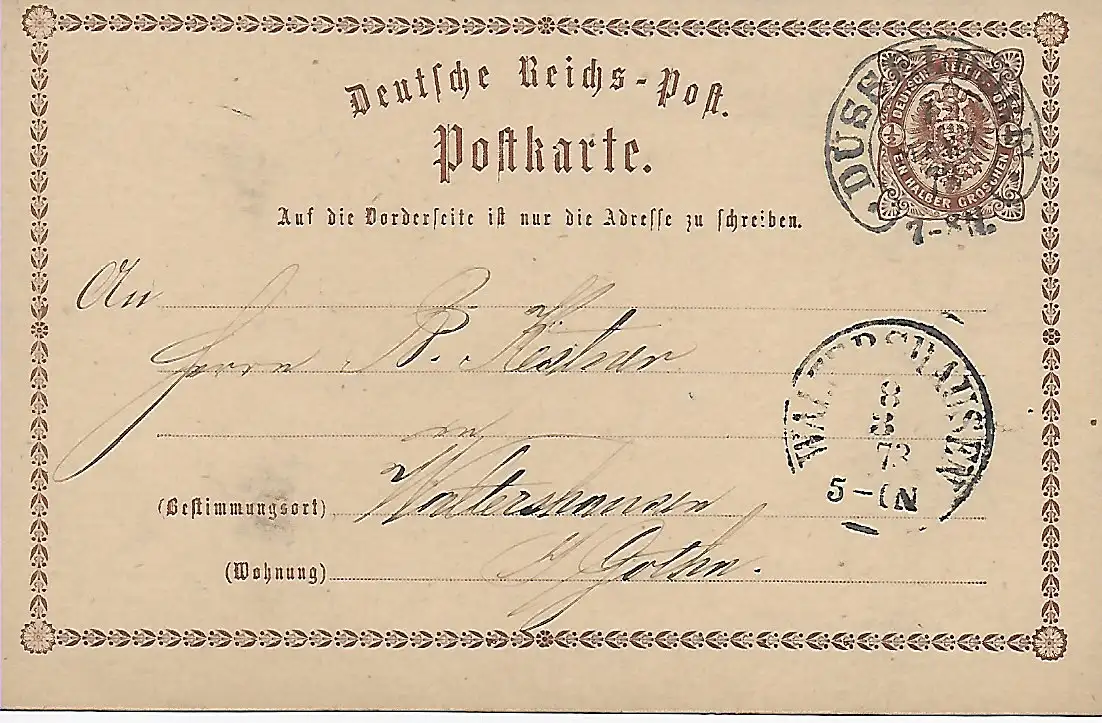 Deutsche Reichs-Post.
Postkarte.
Auf die Vorderseite ist nur die Adresse zu schreiben.
DEUTSCHE REICHS-POST
½ ½
EIN HALBER GROSCHEN
DUSSELDORF
7-8N.
An
Herrn B. Kestner
in
(Bestimmungsort) Waltershausen
(Wohnung) b/ Gotha.
WALTERSHAUSEN
8
3
73
5-6N